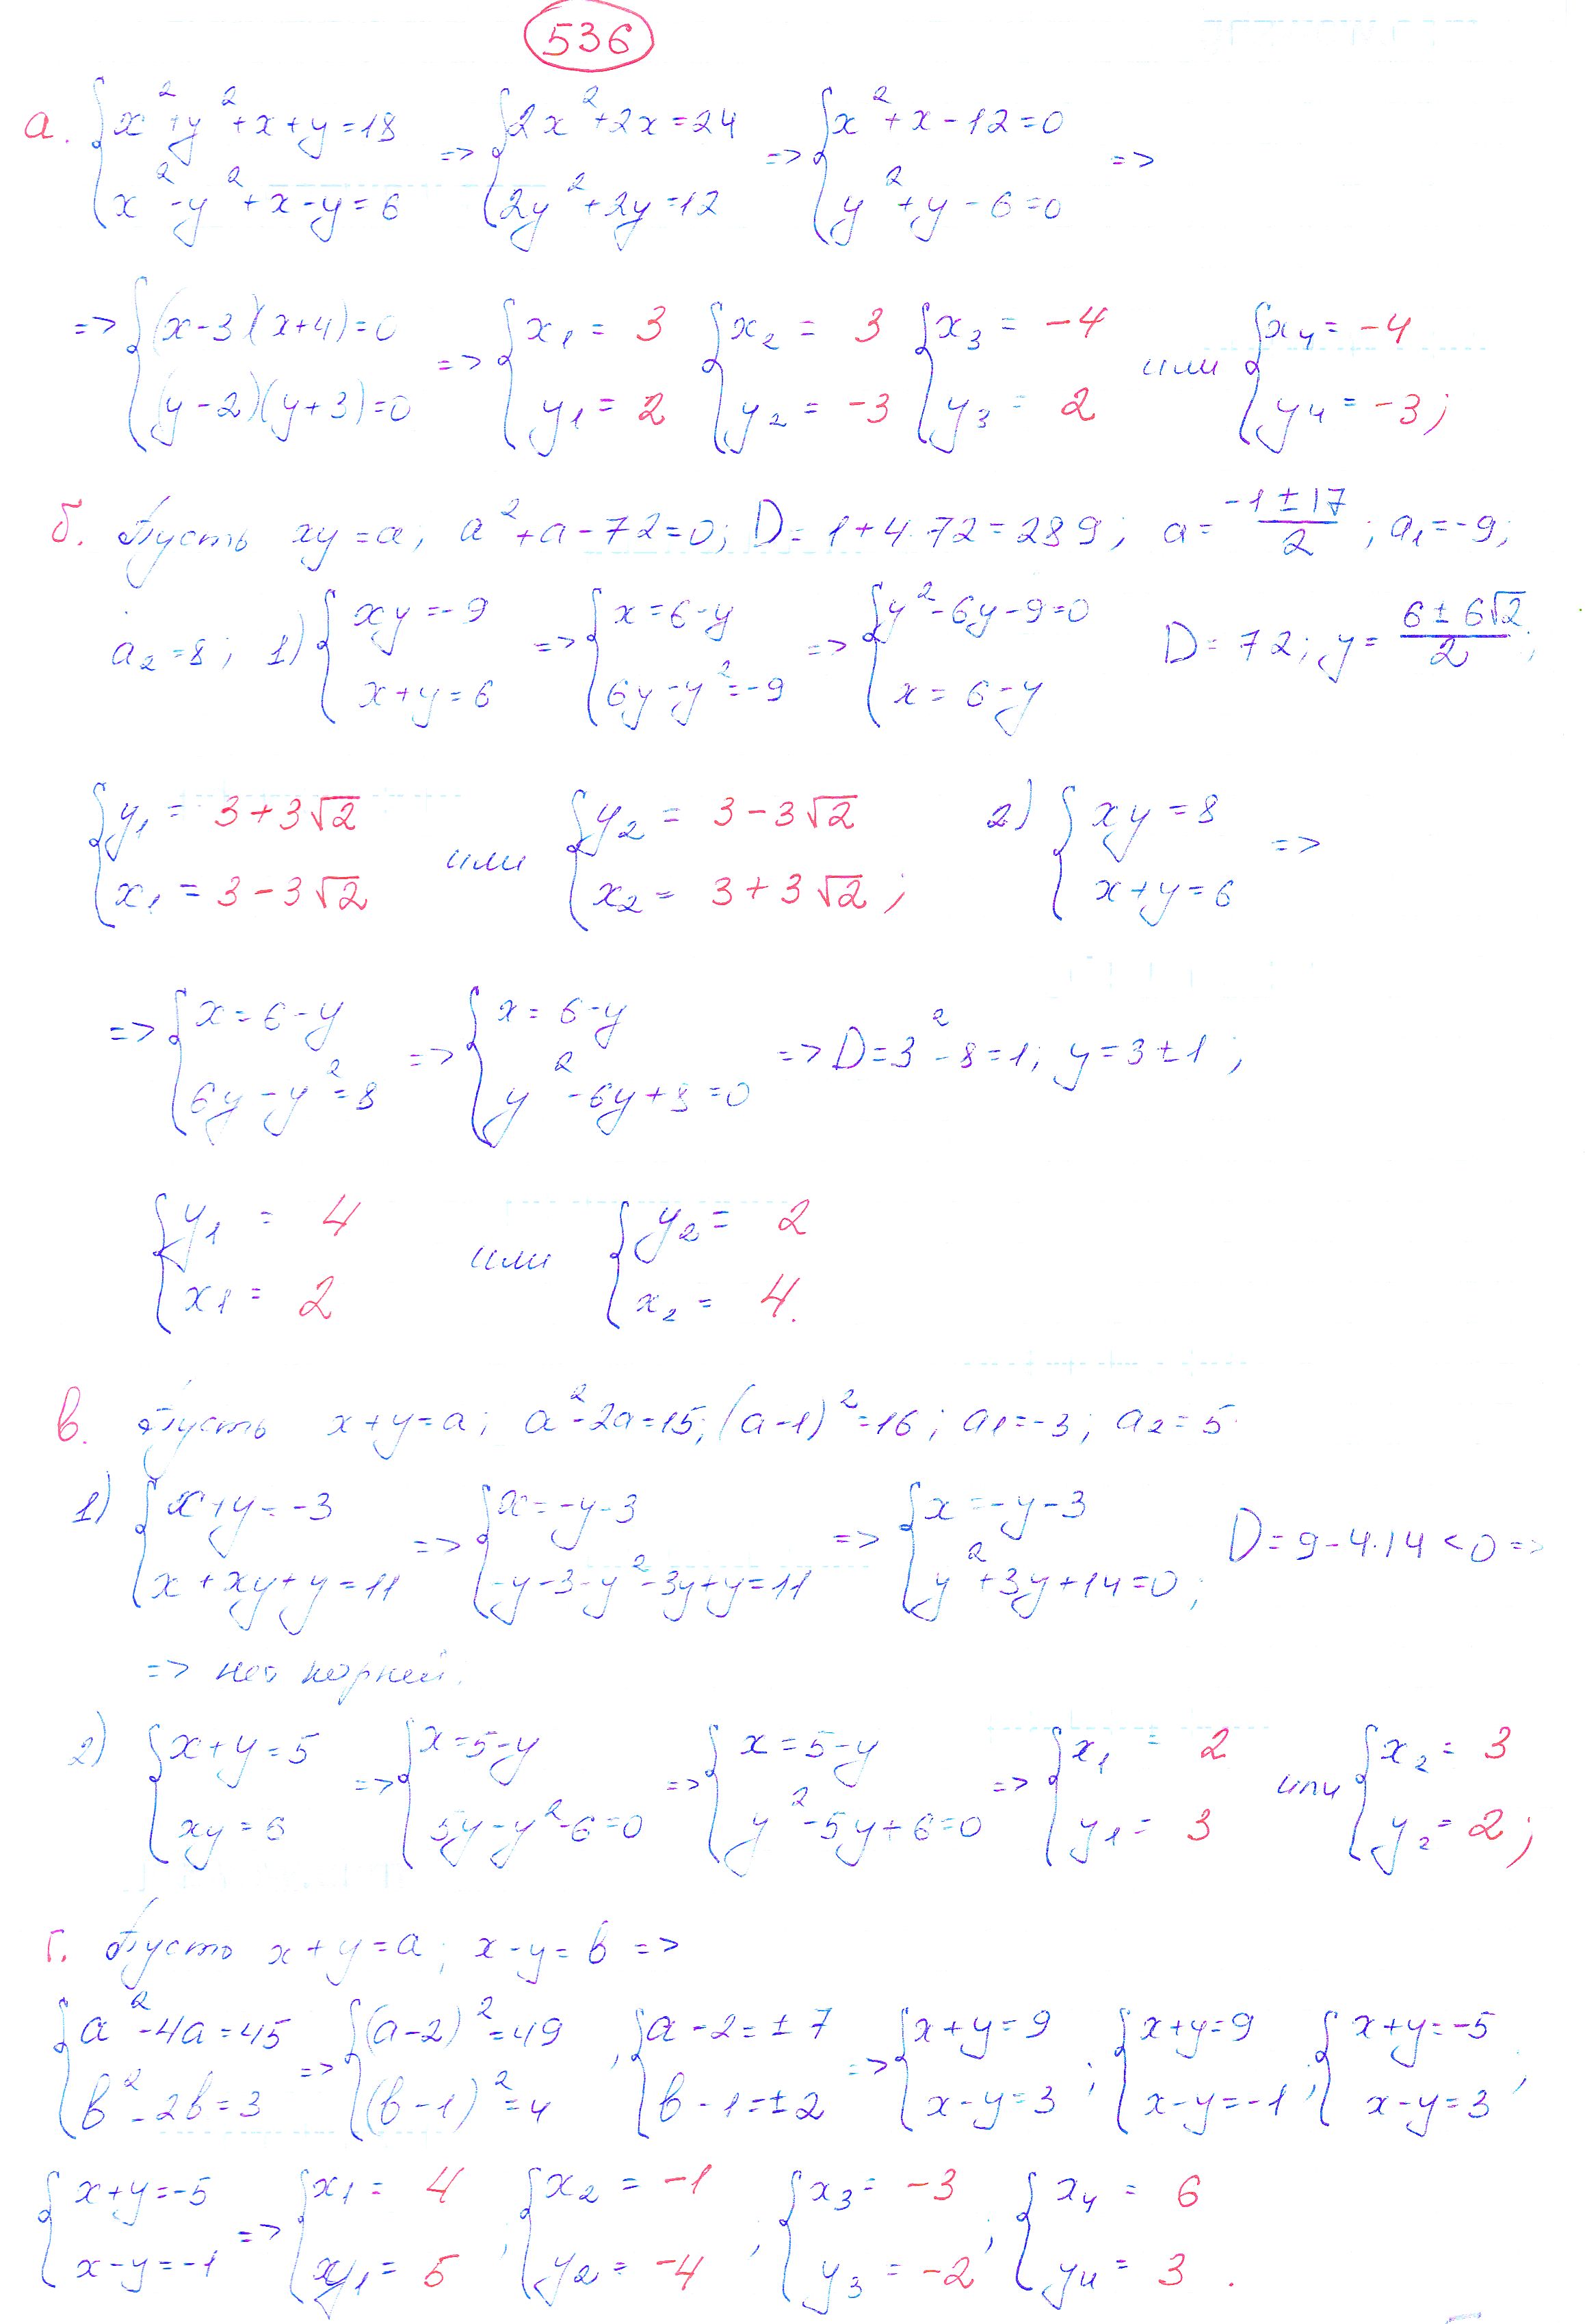 536
а. { x² + y² + x + y = 18 ; x² - y² + x - y = 6 => { 2x² + 2x = 24 ; 2y² + 2y = 12 => { x² + x - 12 = 0 ; y² + y - 6 = 0 =>
=> { (x-3)(x+4) = 0 ; (y-2)(y+3) = 0 => { x₁ = 3 ; y₁ = 2 { x₂ = 3 ; y₂ = -3 { x₃ = -4 ; y₃ = 2 или { x₄ = -4 ; y₄ = -3;
б. Пусть xy = a; a² + a - 72 = 0; D = 1 + 4·72 = 289; a = (-1 ± 17)/2; a₁ = -9;
a₂ = 8; 1) { xy = -9 ; x + y = 6 => { x = 6 - y ; 6y - y² = -9 => { y² - 6y - 9 = 0 ; x = 6 - y D = 72; y = (6 ± 6√2)/2;
{ y₁ = 3 + 3√2 ; x₁ = 3 - 3√2 или { y₂ = 3 - 3√2 ; x₂ = 3 + 3√2; 2) { xy = 8 ; x + y = 6 =>
=> { x = 6 - y ; 6y - y² = 8 => { x = 6 - y ; y² - 6y + 8 = 0 => D = 3² - 8 = 1; y = 3 ± 1;
{ y₁ = 4 ; x₁ = 2 или { y₂ = 2 ; x₂ = 4.
в. Пусть x + y = a; a² - 2a = 15; (a-1)² = 16; a₁ = -3; a₂ = 5
1) { x + y = -3 ; x + xy + y = 11 => { x = -y - 3 ; -y - 3 - y² - 3y + y = 11 => { x = -y - 3 ; y² + 3y + 14 = 0; D = 9 - 4·14 < 0 =>
=> нет корней.
2) { x + y = 5 ; xy = 6 => { x = 5 - y ; 5y - y² - 6 = 0 => { x = 5 - y ; y² - 5y + 6 = 0 => { x₁ = 2 ; y₁ = 3 или { x₂ = 3 ; y₂ = 2;
г. Пусть x + y = a; x - y = b =>
{ a² - 4a = 45 ; b² - 2b = 3 => { (a-2)² = 49 ; (b-1)² = 4 , { a - 2 = ± 7 ; b - 1 = ± 2 => { x + y = 9 ; x - y = 3 ; { x + y = 9 ; x - y = -1 ; { x + y = -5 ; x - y = 3 ,
{ x + y = -5 ; x - y = -1 => { x₁ = 4 ; y₁ = 5 , { x₂ = -1 ; y₂ = -4 , { x₃ = -3 ; y₃ = -2 ; { x₄ = 6 ; y₄ = 3 .